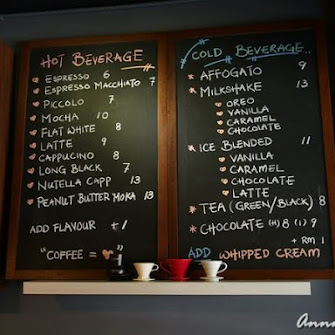 HOT BEVERAGE
ESPRESSO 6
ESPRESSO MACCHIATO 7
PICCOLO 7
MOCHA 10
FLAT WHITE 8
LATTE 9
CAPPUCINO 8
LONG BLACK 7
NUTELLA CAPP 13
PEANUT BUTTER MOKA 13
ADD FLAVOUR +1
"COFFEE = "
COLD BEVERAGE..
AFFOGATO 9
MILKSHAKE 13
OREO
VANILLA
CARAMEL
CHOCOLATE
ICE BLENDED 11
VANILLA
CARAMEL
CHOCOLATE
LATTE
TEA (GREEN/BLACK) 8
CHOCOLATE (H) 8 (C) 9
+ RM 1
ADD WHIPPED CREAM